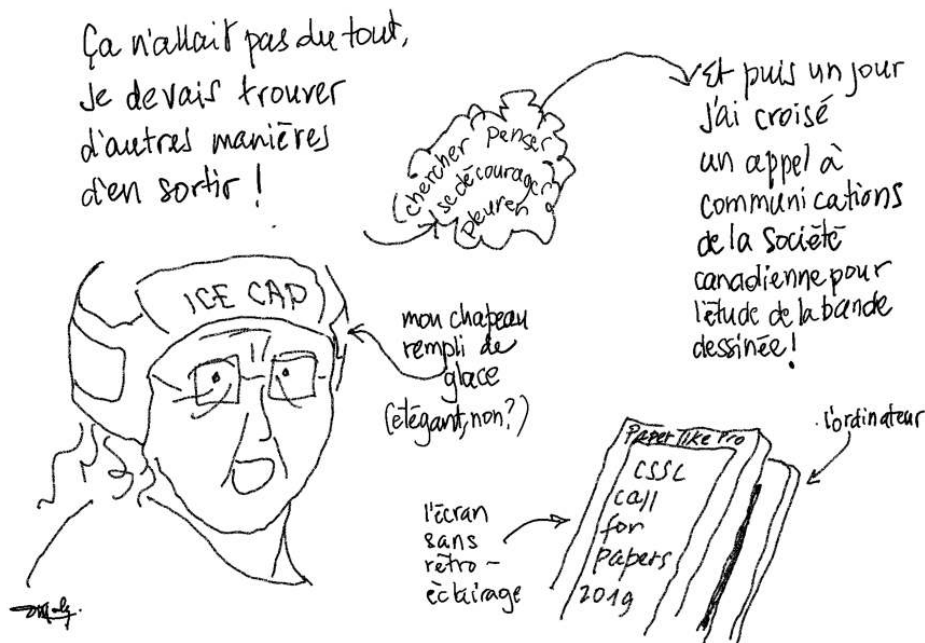 Ça n'allait pas du tout,
je devais trouver
d'autres manières
d'en sortir !
chercher penser
se décourager
pleurer
Et puis un jour
j'ai croisé
un appel à
communications
de la Société
canadienne pour
l'étude de la bande
dessinée!
ICE CAP
mon chapeau
rempli de
glace
(élégant, non?)
l'ordinateur
Paper like Pro
CSSC
call
for
papers
2019
l'écran
sans
rétro-
éclairage